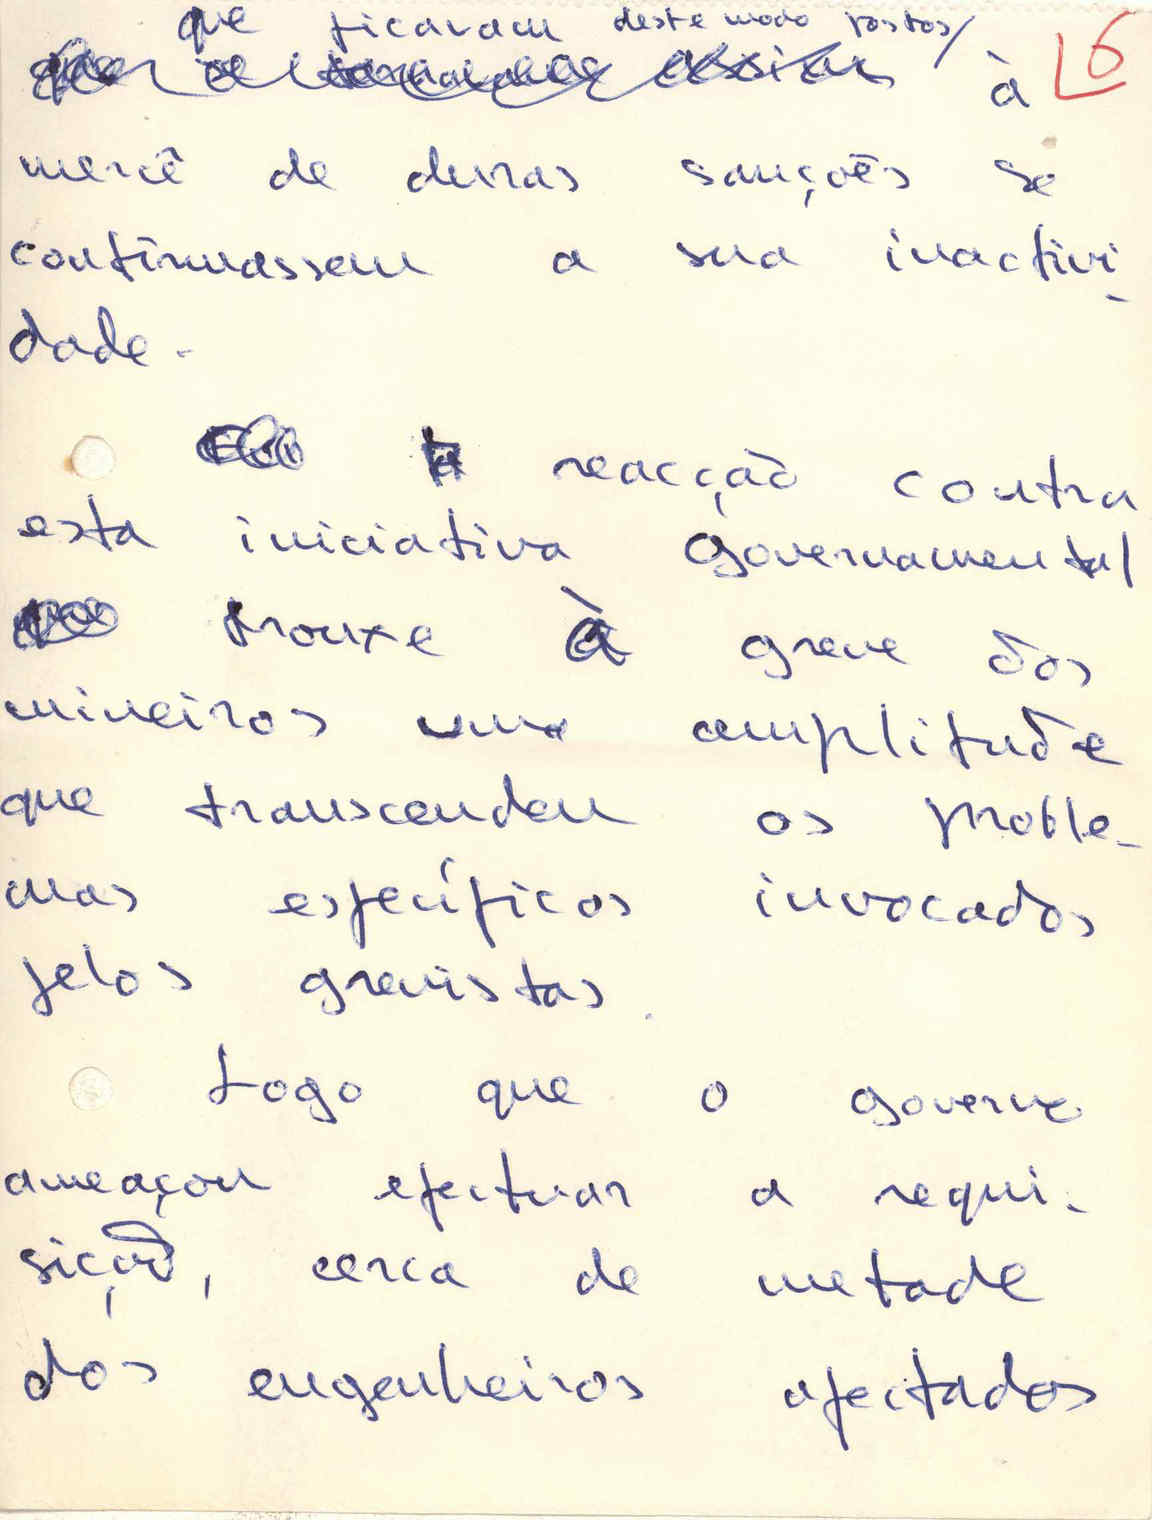 que ficavam deste modo postos/
à 6
mercê de duras sanções se
continuassem a sua inactivi-
dade.
A reacção contra
esta iniciativa governamental
trouxe à greve dos
mineiros uma amplitude
que transcendeu os proble-
mas específicos invocados
pelos grevistas.
Logo que o governo
ameaçou efectuar a requi-
sição, cerca de metade
dos engenheiros afectados